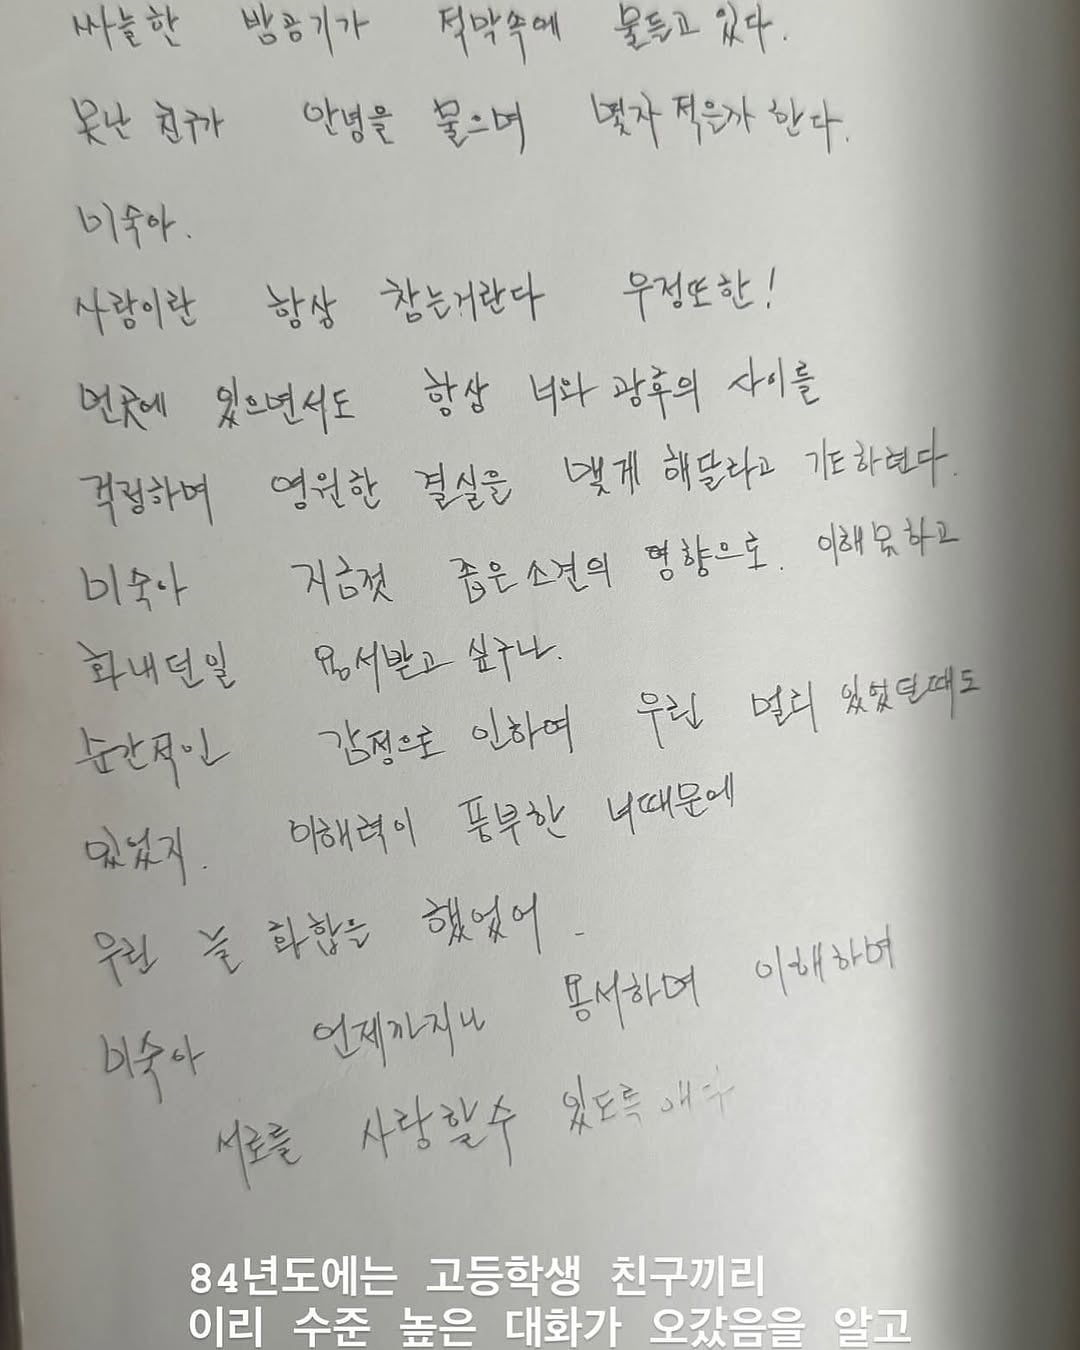 싸늘한 밤공기가 적막속에 물들고 있다.
못난 친구가 안녕을 물으며 몇자 적을까 한다.
미숙아.
사랑이란 항상 참는거란다 우정또한!
먼곳에 있으면서도 항상 너와 광후의 사이를
걱정하며 영원한 결실을 맺게 해달라고 기도하련다.
미숙아 지금껏 좁은 소견의 영향으로. 이해못하고
화내던일 용서받고 싶구나.
순간적인 감정으로 인하여 우린 멀리 있었던때도
있었지. 이해력이 풍부한 너때문에
우린 늘 화합을 했었어.
미숙아 언제까지나 용서하며 이해하며
서로를 사랑할수 있도록
84년도에는 고등학생 친구끼리
이리 수준 높은 대화가 오갔음을 알고